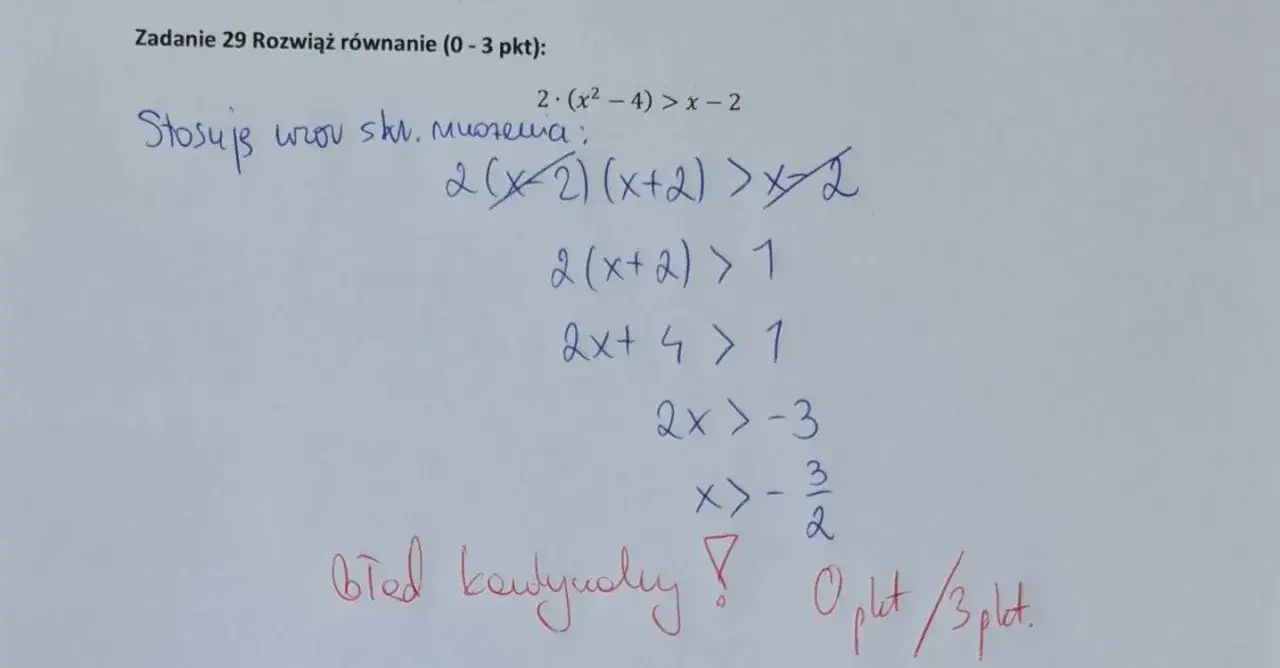 Zadanie 29 Rozwiąż równanie (0 - 3 pkt):
2 · (x² − 4) > x − 2
Stosuję wzór skr. mnożenia:
2(x-2)(x+2) > x-2
2(x+2) > 1
2x+ 4 > 1
2x > -3
x > - 3/2
Błąd kardynalny! 0 pkt / 3 pkt.